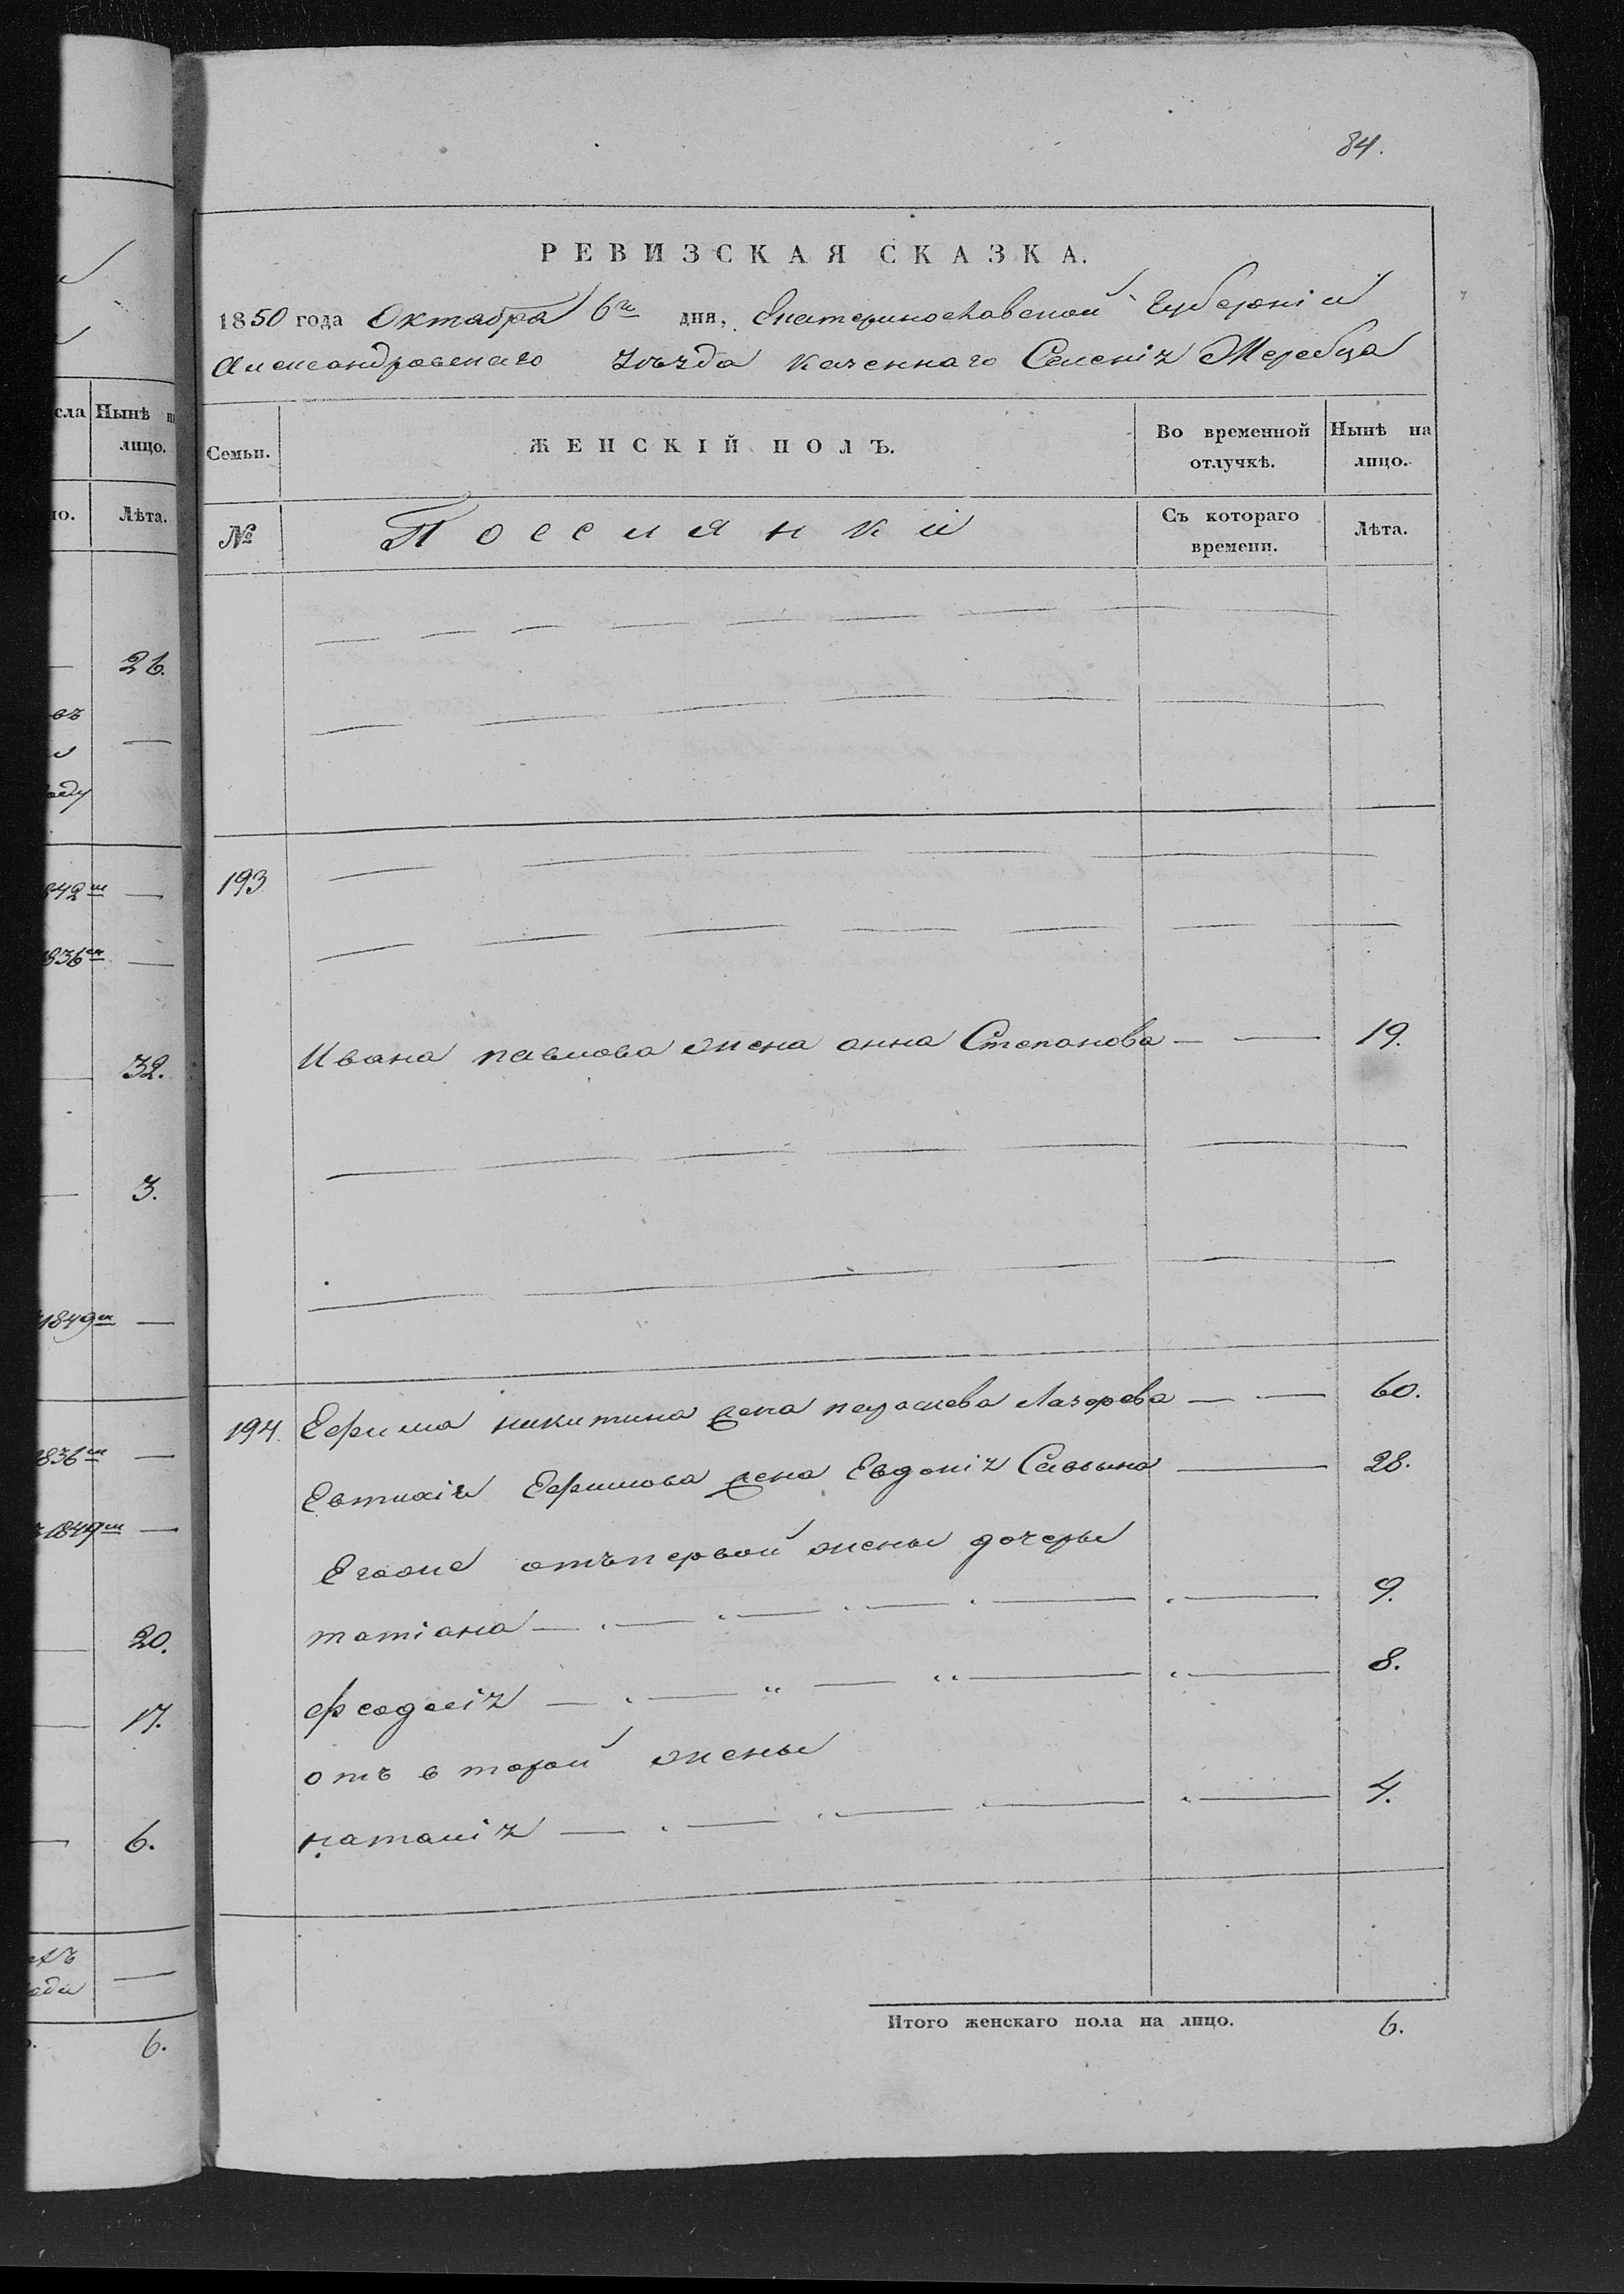 84.
РЕВИЗСКАЯ СКАЗКА.
1850 года Октабра 6го дня, Екатеринославской Губерніи
Александровскаго Уѣзда казеннаго Селенія Жеребца
Семьи.
ЖЕНСКІЙ ПОЛЪ.
Во временной отлучкѣ.
Нынѣ на лицо.
№
Поселянки
Съ котораго времени.
Лѣта.
193
Ивана павлова жена анна Степанова — — 19.
194. Ефима никитина жена параскева Лазарева — — 60.
Евтихія Ефимова жена Евдокія Саввина — 28.
Егоже отъпервой жены дочеры
татіана — 9.
феодосія — 8.
отъ второй жены
наталія — 4.
Итого женскаго пола на лицо. 6.
сла
Нынѣ на
лицо.
ло.
Лѣта.
26.
въ
842го —
1836го —
32.
3.
1849го —
1836го —
1849го —
20.
17.
6.
6.